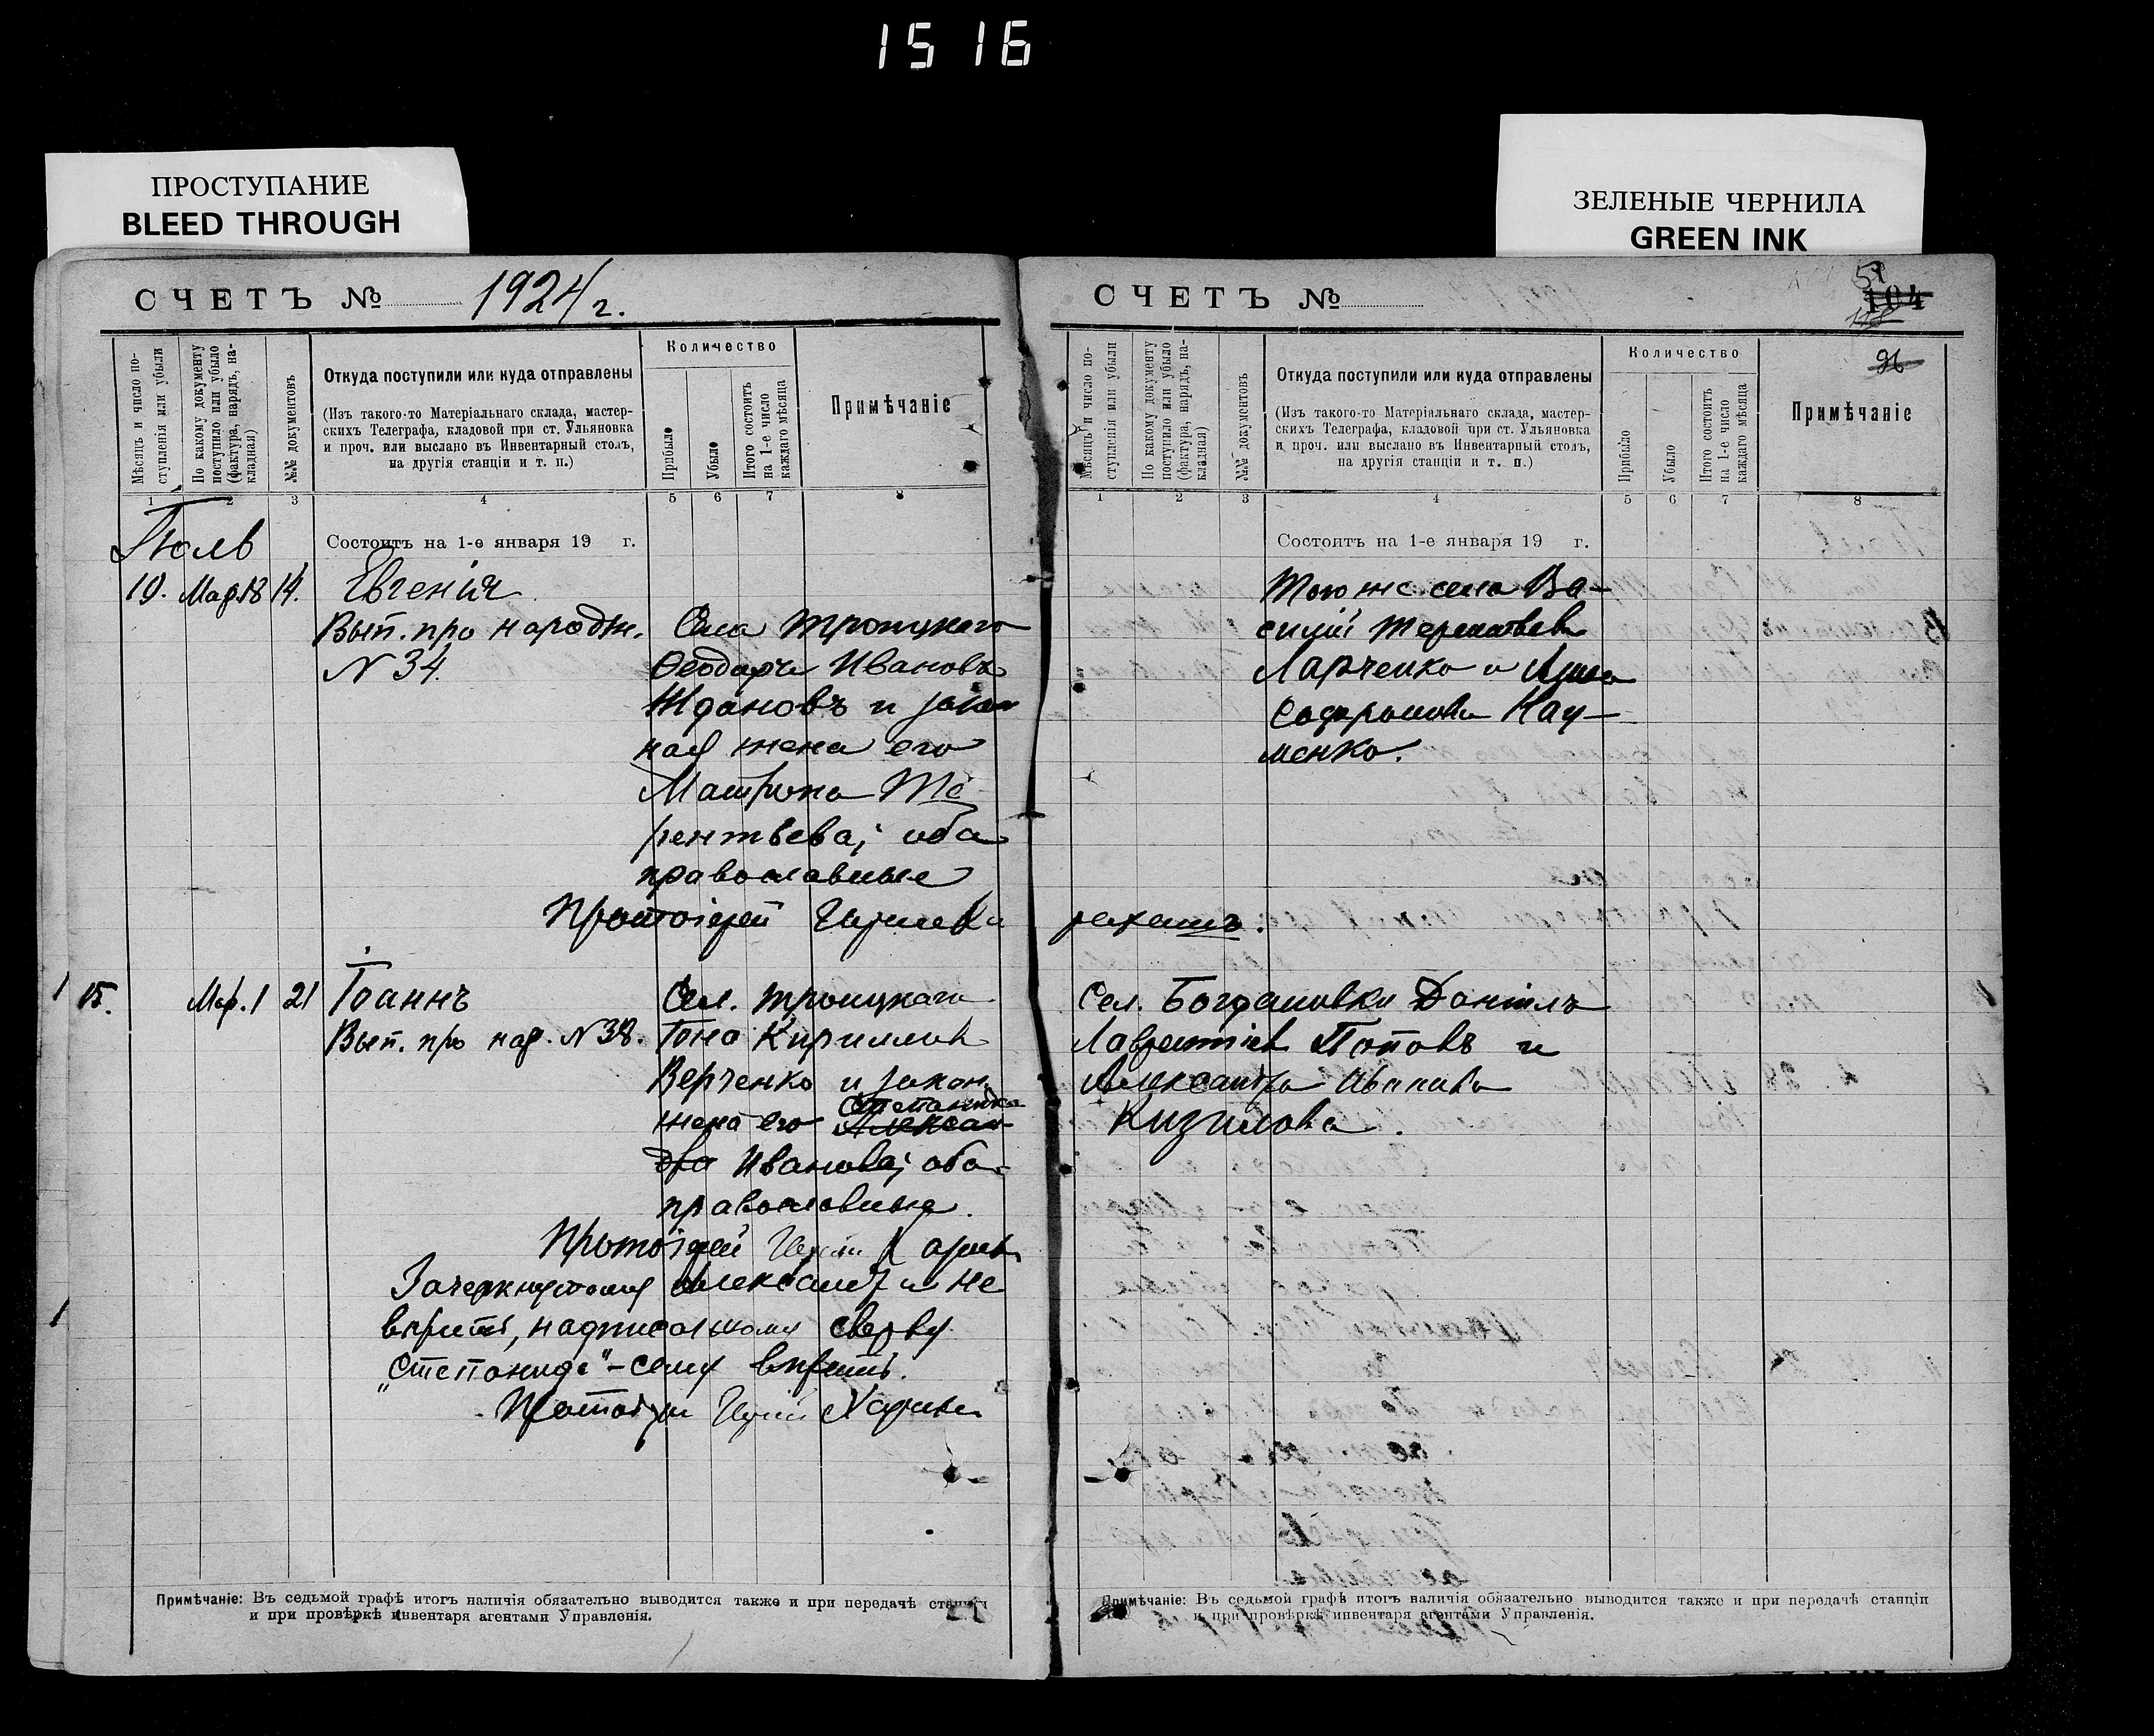 1516
ПРОСТУПАНИЕ
BLEED THROUGH
ЗЕЛЕНЫЕ ЧЕРНИЛА
GREEN INK
СЧЕТЪ № 1924 г.
Мѣсяцъ и число поступленія или убыли
По какому документу поступило или убыло (фактура, нарядъ, накладная)
№№ документовъ
Откуда поступили или куда отправлены
(Изъ такого-то Матеріальнаго склада, мастер-
скихъ Телеграфа, кладовой при ст. Ульяновка
и проч. или выслано въ Инвентарный столъ,
на другія станціи и т. п.)
Количество
Прибыло
Убыло
Итого состоитъ на 1-е число каждаго мѣсяца
Примѣчаніе
1 2 3 4 5 6 7 8
Іюль
Состоитъ на 1-е января 19 г.
19. Мар. 18 14. Евгенія
Вып. про народж. Села Троицкаго
N 34. Ѳеодоръ Ивановъ
Ждановъ и закон
ная жена его
Матрона Те
рентьева; оба
православные
Протоіерей
15. Мар. 1 21 Іоаннъ Сел. Троицкаго
Вып. про нар. N 38. Іона Кирилловъ
Верченко и закон.
Степанида
жена его Алексан
дра Иванова; оба
православные.
Протоіерей
Зачеркнутому Александра не
вѣрить, надписанному сверху
„Степанида"–сему вѣрить.
Протоіерей
Примѣчаніе: Въ седьмой графѣ итогъ наличія обязательно выводится также и при передачѣ станціи
и при провѣркѣ инвентаря агентами Управленія.
СЧЕТЪ №
51
104
96
Мѣсяцъ и число поступленія или убыли
По какому документу поступило или убыло (фактура, нарядъ, накладная)
№№ документовъ
Откуда поступили или куда отправлены
(Изъ такого-то Матеріальнаго склада, мастер-
скихъ Телеграфа, кладовой при ст. Ульяновка
и проч. или выслано въ Инвентарный столъ,
на другія станціи и т. п.)
Количество
Прибыло
Убыло
Итого состоитъ на 1-е число каждаго мѣсяца
Примѣчаніе
1 2 3 4 5 6 7 8
Состоитъ на 1-е января 19 г.
Того же села Ва-
силій Терентьевъ
Ларченко и
Софронова Нау-
менко.
Сел. Богдановки Даніилъ
Лаврентіевъ Поповъ и
Александра Иванова
Кизилова.
Примѣчаніе: Въ седьмой графѣ итогъ наличія обязательно выводится также и при передачѣ станціи
и при провѣркѣ инвентаря агентами Управленія.